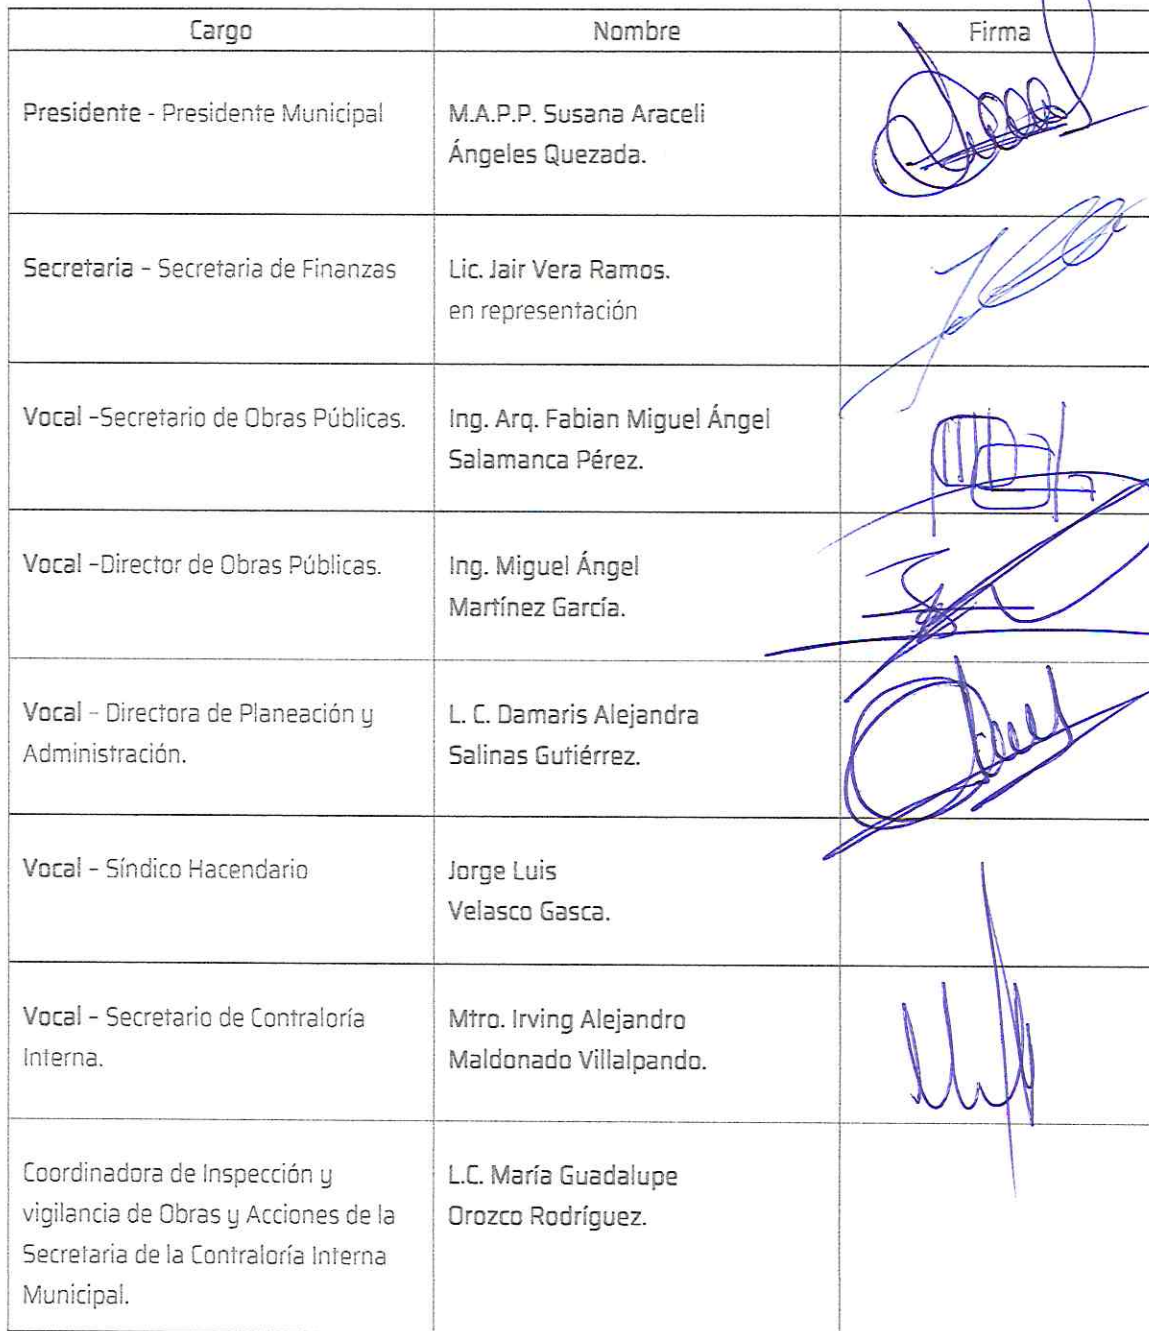 Cargo Nombre Firma
Presidente - Presidente Municipal
M.A.P.P. Susana Araceli
Ángeles Quezada.
Secretaria - Secretaria de Finanzas
Lic. Jair Vera Ramos.
en representación
Vocal -Secretario de Obras Públicas.
Ing. Arq. Fabian Miguel Ángel
Salamanca Pérez.
Vocal -Director de Obras Públicas.
Ing. Miguel Ángel
Martínez García.
Vocal - Directora de Planeación y
Administración.
L. C. Damaris Alejandra
Salinas Gutiérrez.
Vocal - Síndico Hacendario
Jorge Luis
Velasco Gasca.
Vocal - Secretario de Contraloría
Interna.
Mtro. Irving Alejandro
Maldonado Villalpando.
Coordinadora de Inspección y
vigilancia de Obras y Acciones de la
Secretaria de la Contraloría Interna
Municipal.
L.C. María Guadalupe
Orozco Rodríguez.